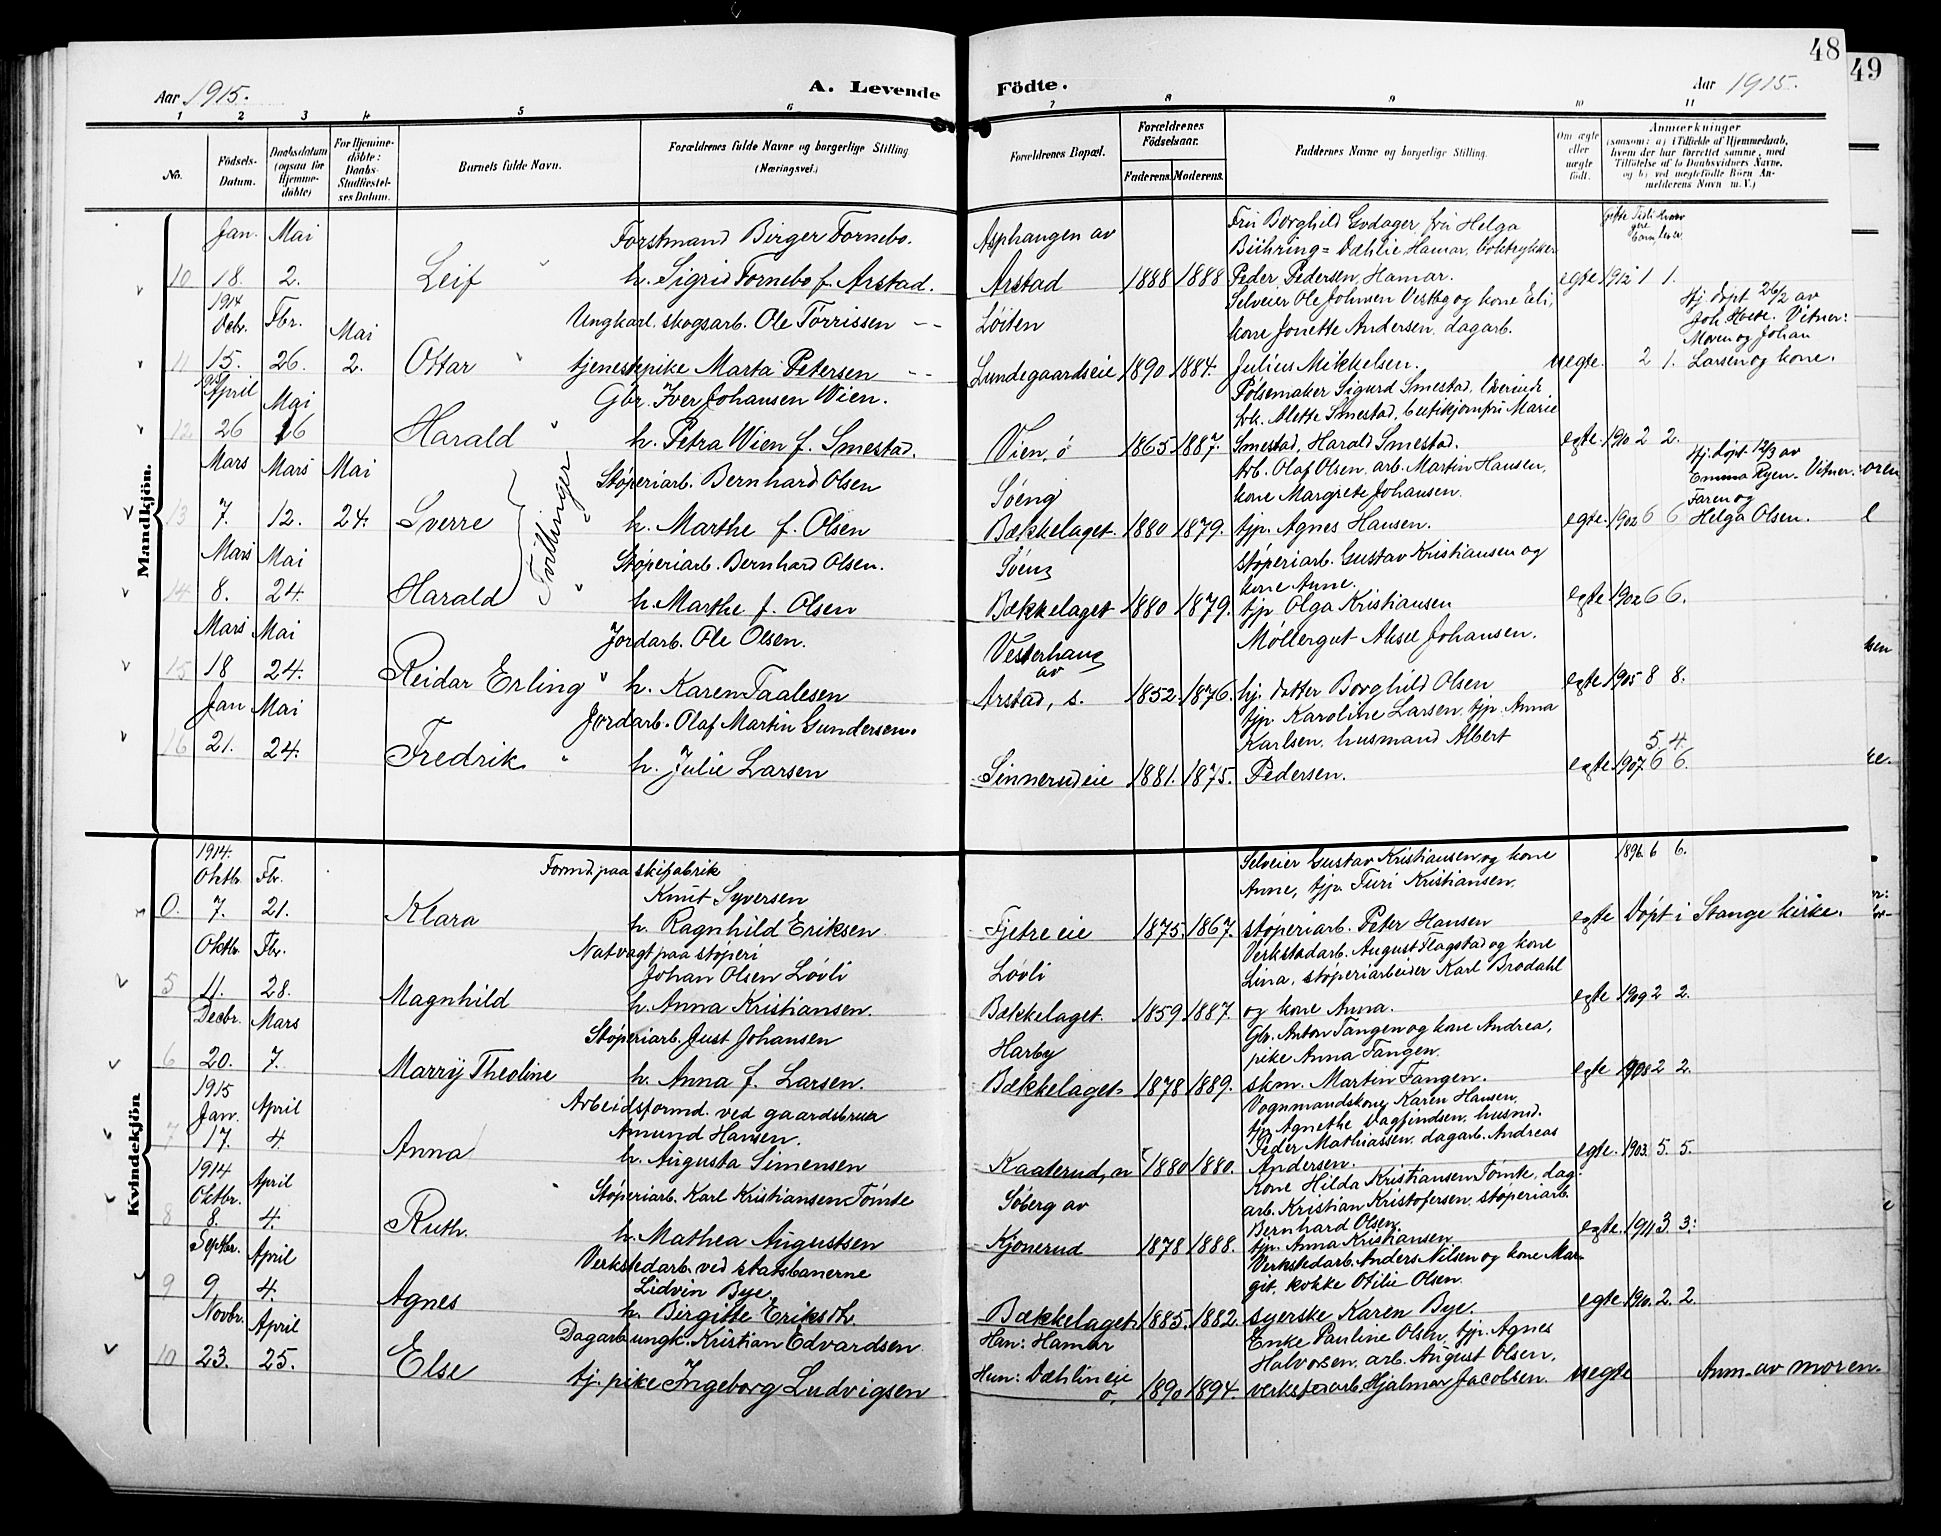 48
49
Aar 1915.
A. Levende Födte.
Aar 1915.
1 2 3 4 5 6 7 8 9 10 11
No.
Födsels-Datum.
Daabsdatum (ogsaa for Hjemme-döbte)
For Hjemme-döbte: Daabs-Stadfæstel-ses Datum.
Barnets fulde Navn.
Forældrenes fulde Navne og borgerlige Stilling (Næringsvei.)
Forældrenes Bopæl.
Forældrenes Födselsaar.
Faderens. Moderens.
Faddernes Navne og borgerlige Stilling.
Om ægte eller uægte födt.
Anmærkninger (saasom: a) i Tilfælde af Hjemmedaab, hvem der har forrettet samme, med Tilföielse af to Daabsvidners Navne, og b) ved uægtefödte Börn An-melderens Navn m. V.)
Mandkjön.
Jan. Mai Forstmand Birger Fornebo. Asphaugen av Fru Borghild Godager, fru Helga
Bühring=Dæhlie Hamar, boktrykker
10 18. 2. Leif h. Sigrid Fornebo f. Arstad. Arstad 1888 1888 Peder Pedersen, Hamar. egte 1912 1 1.
1914 Decbr. Fbr. Mai Ungkarl, skogsarb. Ole Torrissen Løiten Selveier Ole Johnsen Vestbg og kone Eli, Hj. døpt 26/2 av
kone Jonette Andersen, dagarb. Joh. Hoel. Vitner: Moren og Johan
11 15. 26. 2. Ottar tjenestepike Marta Petersen Lundsgaardseie 1890 1884. Julius Mikkelsen. uegte. 2 1. Larsen og kone.
1915 April Mai Gbr. Iver Johansen Wien. Pølsemaker Sigurd Smestad,
Alette Smestad, butikjomfru Marie
12 26 16 Harald h. Petra Wien f. Smestad. Vien, ø 1865 1887. Smestad, Harald Smestad. egte. 1910 2 2.
Mars Mars Mai Støperiarb. Bernhard Olsen Søeng Arb. Olaf Olsen, arb. Martin Hansen, Hj. døpt 12/3 av
kone Margrete Johansen. Emma Ryen. Vitner: Faren og
13 7. 12. 24. Sverre Tvillinger h. Marthe f. Olsen Bækkelaget. 1880 1879. tjp. Agnes Hansen. egte. 1902 6 6 Helga Olsen.
Mars Mai Støperiarb. Bernhard Olsen. Søeng støperiarb. Gustav Kristiansen og
kone Anne.
14 8. 24. Harald h. Marthe f. Olsen Bækkelaget 1880 1879. tjp Olga Kristiansen egte 1902 6 6.
Mars Mai Jordarb. Ole Olsen. Vesterhaug av Møllergut Aksel Johansen.
15 18 24. Reidar Erling h. Karen Taalesen Arstad, s. 1852. 1876. hj. datter Borghild Olsen egte 1905 8 8.
Jan Mai Jordarb. Olaf Martin Gundersen. tjp Karoline Larsen, tjp. Anna
Karlsen, husmand Albert 5 4.
16 21. 24. Fredrik h. Julie Larsen Sinnerudeie 1881. 1875. Pedersen. egte 1907. 6 6.
Kvindekjön
1914. Oktbr. Fbr. Formd. paa skifabrik Selveier Gustav Kristiansen og kone 1896. 6 6.
Knut Syversen Anne, tjp. Turi Kristiansen,
7. 21. Klara h. Ragnhild Eriksen Fjetre eie 1875. 1867. støperiarb. Peter Hansen egte Døpt i Stange kirke.
Oktbr. Fbr. Natvagt paa støperi Verkstadarb. August Flagstad og kone
Johan Olsen Løvli Løvli Lina, støperiarbeider Karl Brodahl
5 11. 28. Magnhild h. Anna Kristiansen. Bækkelaget. 1859 1887. og kone Anna. egte 1909 2 2.
Decbr. Mars Støperiarb. Just Johansen Harby Gbr. Anton Tangen og kone Andrea,
pike Anna Tangen.
6 20. 7. Marry Theoline h. Anna f. Larsen. Bækkelaget 1878 1889. skm. Martin Tangen. egte 1908 2 2.
1915 Jan. April Arbeidsformd. ved gaardsbruk Vognmandskone Karen Hansen,
Amund Hansen. tjp Agnethe Dagfindsen, husmd.
7 17. 4. Anna h. Augusta Simensen Kaaterud, n 1880 1880. Peder Mathiassen, dagarb. Andreas Andersen. egte. 1903. 5. 5.
1914 Oktbr. April Støperiarb. Karl Kristiansen Tømte Søberg av Kone Hilda Kristiansen Tømte, dag-
arb. Kristian Kristofersen, støperiarb.
8 8. 4. Ruth. h. Mathea Augustsen Kjonerud 1878 1888. Bernhard Olsen. tjp. Anna Kristiansen egte. 1911. 3 3.
Septbr. April Verkstedarb. ved statsbanerne Verkstedarb. Anders Nilsen og kone Mar-
Lidvin Bye. git, kokke Otilie Olsen.
9 9. 4. Agnes h. Birgitte Eriksdtr. Bækkelaget 1885. 1882. syerske Karen Bye. egte 1910. 2. 2.
Novbr. April Dagarb. ungk. Kristian Edvardsen Han: Hamar Enke Pauline Olsen, tjp. Agnes
Halvorsen, arb. August Olsen,
10 23. 25. Else tj. pike Ingeborg Ludvigsen Hun: Dæhlineie ø, 1890 1894. verkstedarb. Hjalmar Jacobsen. uegte Anm. av moren.